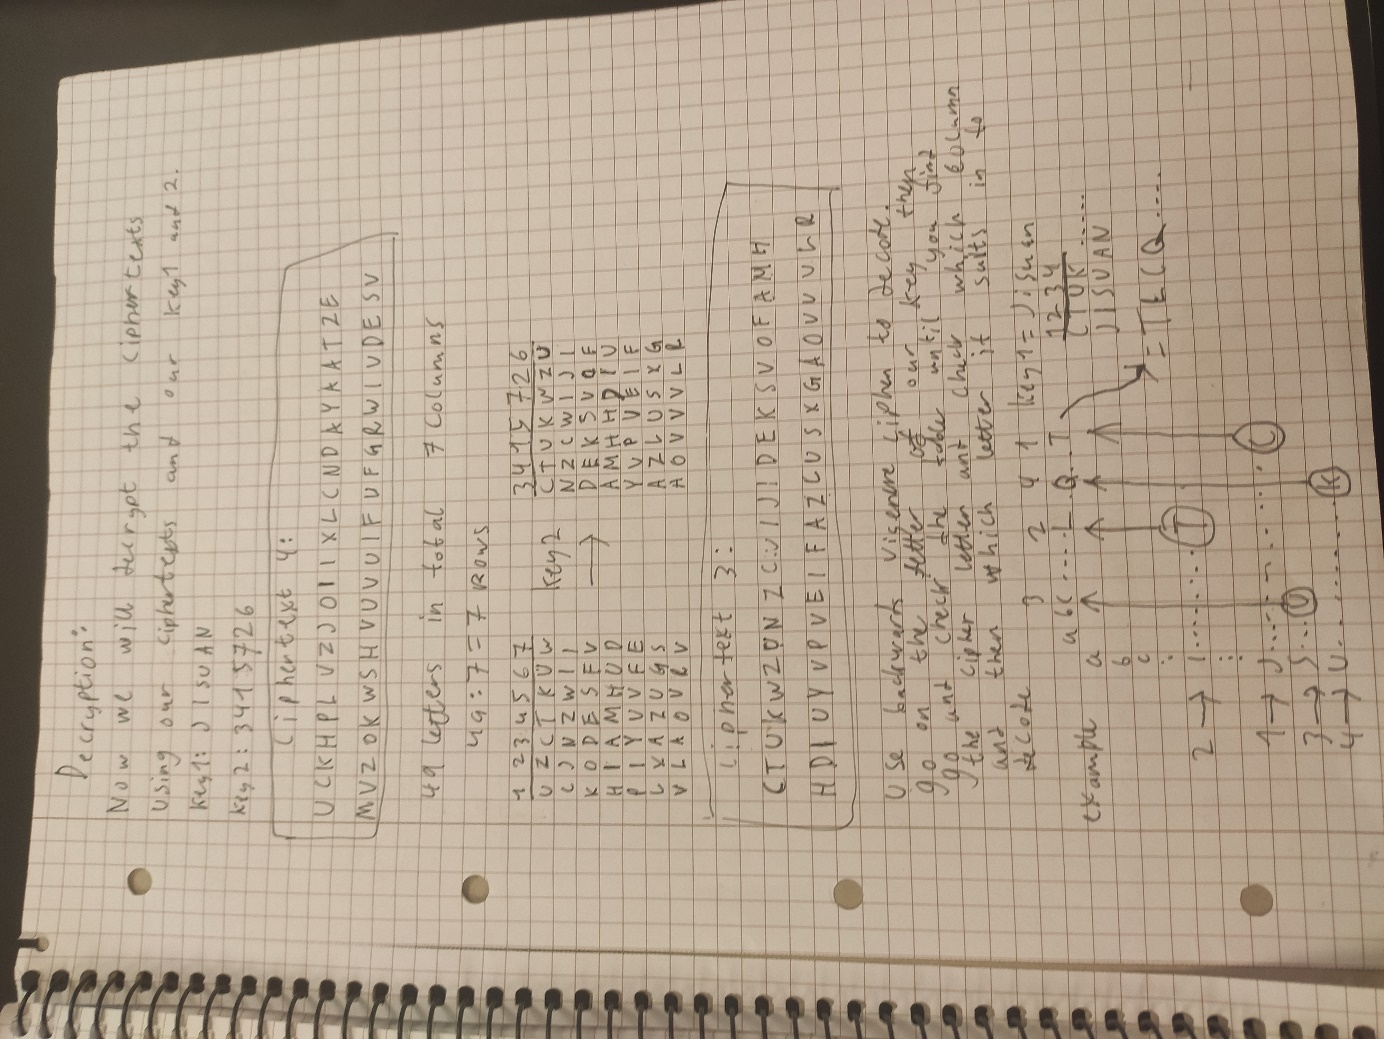 Decryption:
Now we will decrypt the Ciphertexts
Using our Ciphertexts and our Key1 and 2.
Key1: JISUAN
Key2: 3415726
Ciphertext 4:
UCKHPLVZJOIIXLCNDAYAATZE
MVZOKWSHUVUVIFUFGRWIVDESV
49 letters in total 7 Columns
49:7=7 Rows
1234567
UZCTKUW
CJNZWII
KODESFV
HIAMHUD
PIYUVFE
LXAZUGS
VLAOVRV
Key2
3415726
CTUKWZU
NZCWIJI
DEKSVOF
AMHHDIU
YUPVEIF
AZLUSXG
AOVVVLR
Ciphertext 3:
CTUKWZUNZCWIJIDEKSVOFAMH
HDIUYUPVEIFAZLUSXGAOVVVLR
Use backwarts Vigenere cipher to decode.
go on the letter of our key then
go and check the table until you find
the cipher letter and check which column
and then which letter it suits in to
decode
3 2 4 1 Key1=Jisuan
example
abc....L.Q..T
1234
CTUK.....
JISUAN
=TLCQ....
a
b
c
2 → I.......T
1 → J.......C
3 → S...U
4 → U.......K